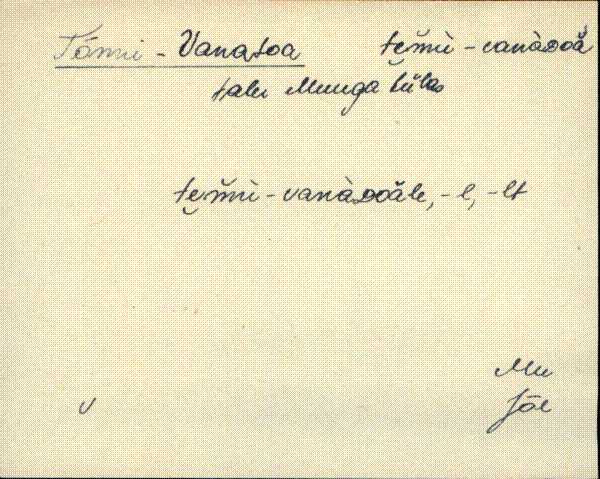 Tõnni - Vanatoa te̮m̆mì - vanàᴅoă
talu Muuga külas
te̮m̆mì - vanàᴅoăle, -l, -lt
Mu
Jõe
v